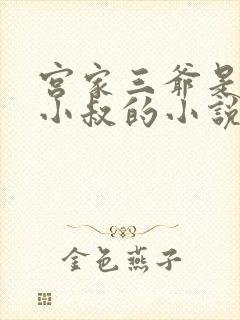 宫家三爷是
小叔的小說
金色燕子